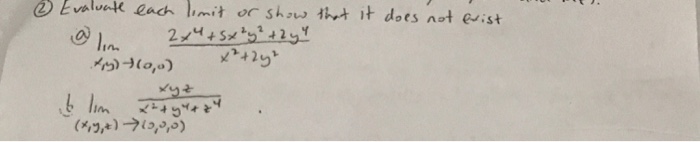 ② Evaluate each limit or show that it does not exist
ⓐ lim (x,y)→(0,0) (2x⁴+5x²y²+2y⁴)/(x²+2y²)
b lim (x,y,z)→(0,0,0) xyz/(x²+y⁴+z⁴)